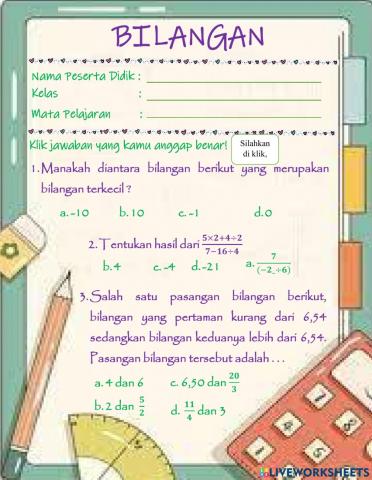 BILANGAN
Nama Peserta Didik :
Kelas :
Mata Pelajaran :
Klik jawaban yang kamu anggap benar!
Silahkan
di klik,
1. Manakah diantara bilangan berikut yang merupakan
bilangan terkecil ?
a. -10 b. 10 c. -1 d. 0
2. Tentukan hasil dari (5×2+4÷2)/(7−16÷4)
b. 4 c. -4 d. -21 a. 7/(−2_÷6)
3. Salah satu pasangan bilangan berikut,
bilangan yang pertaman kurang dari 6,54
sedangkan bilangan keduanya lebih dari 6,54.
Pasangan bilangan tersebut adalah . . .
a. 4 dan 6 c. 6,50 dan 20/3
b. 2 dan 5/2 d. 11/4 dan 3
LIVEWORKSHEETS